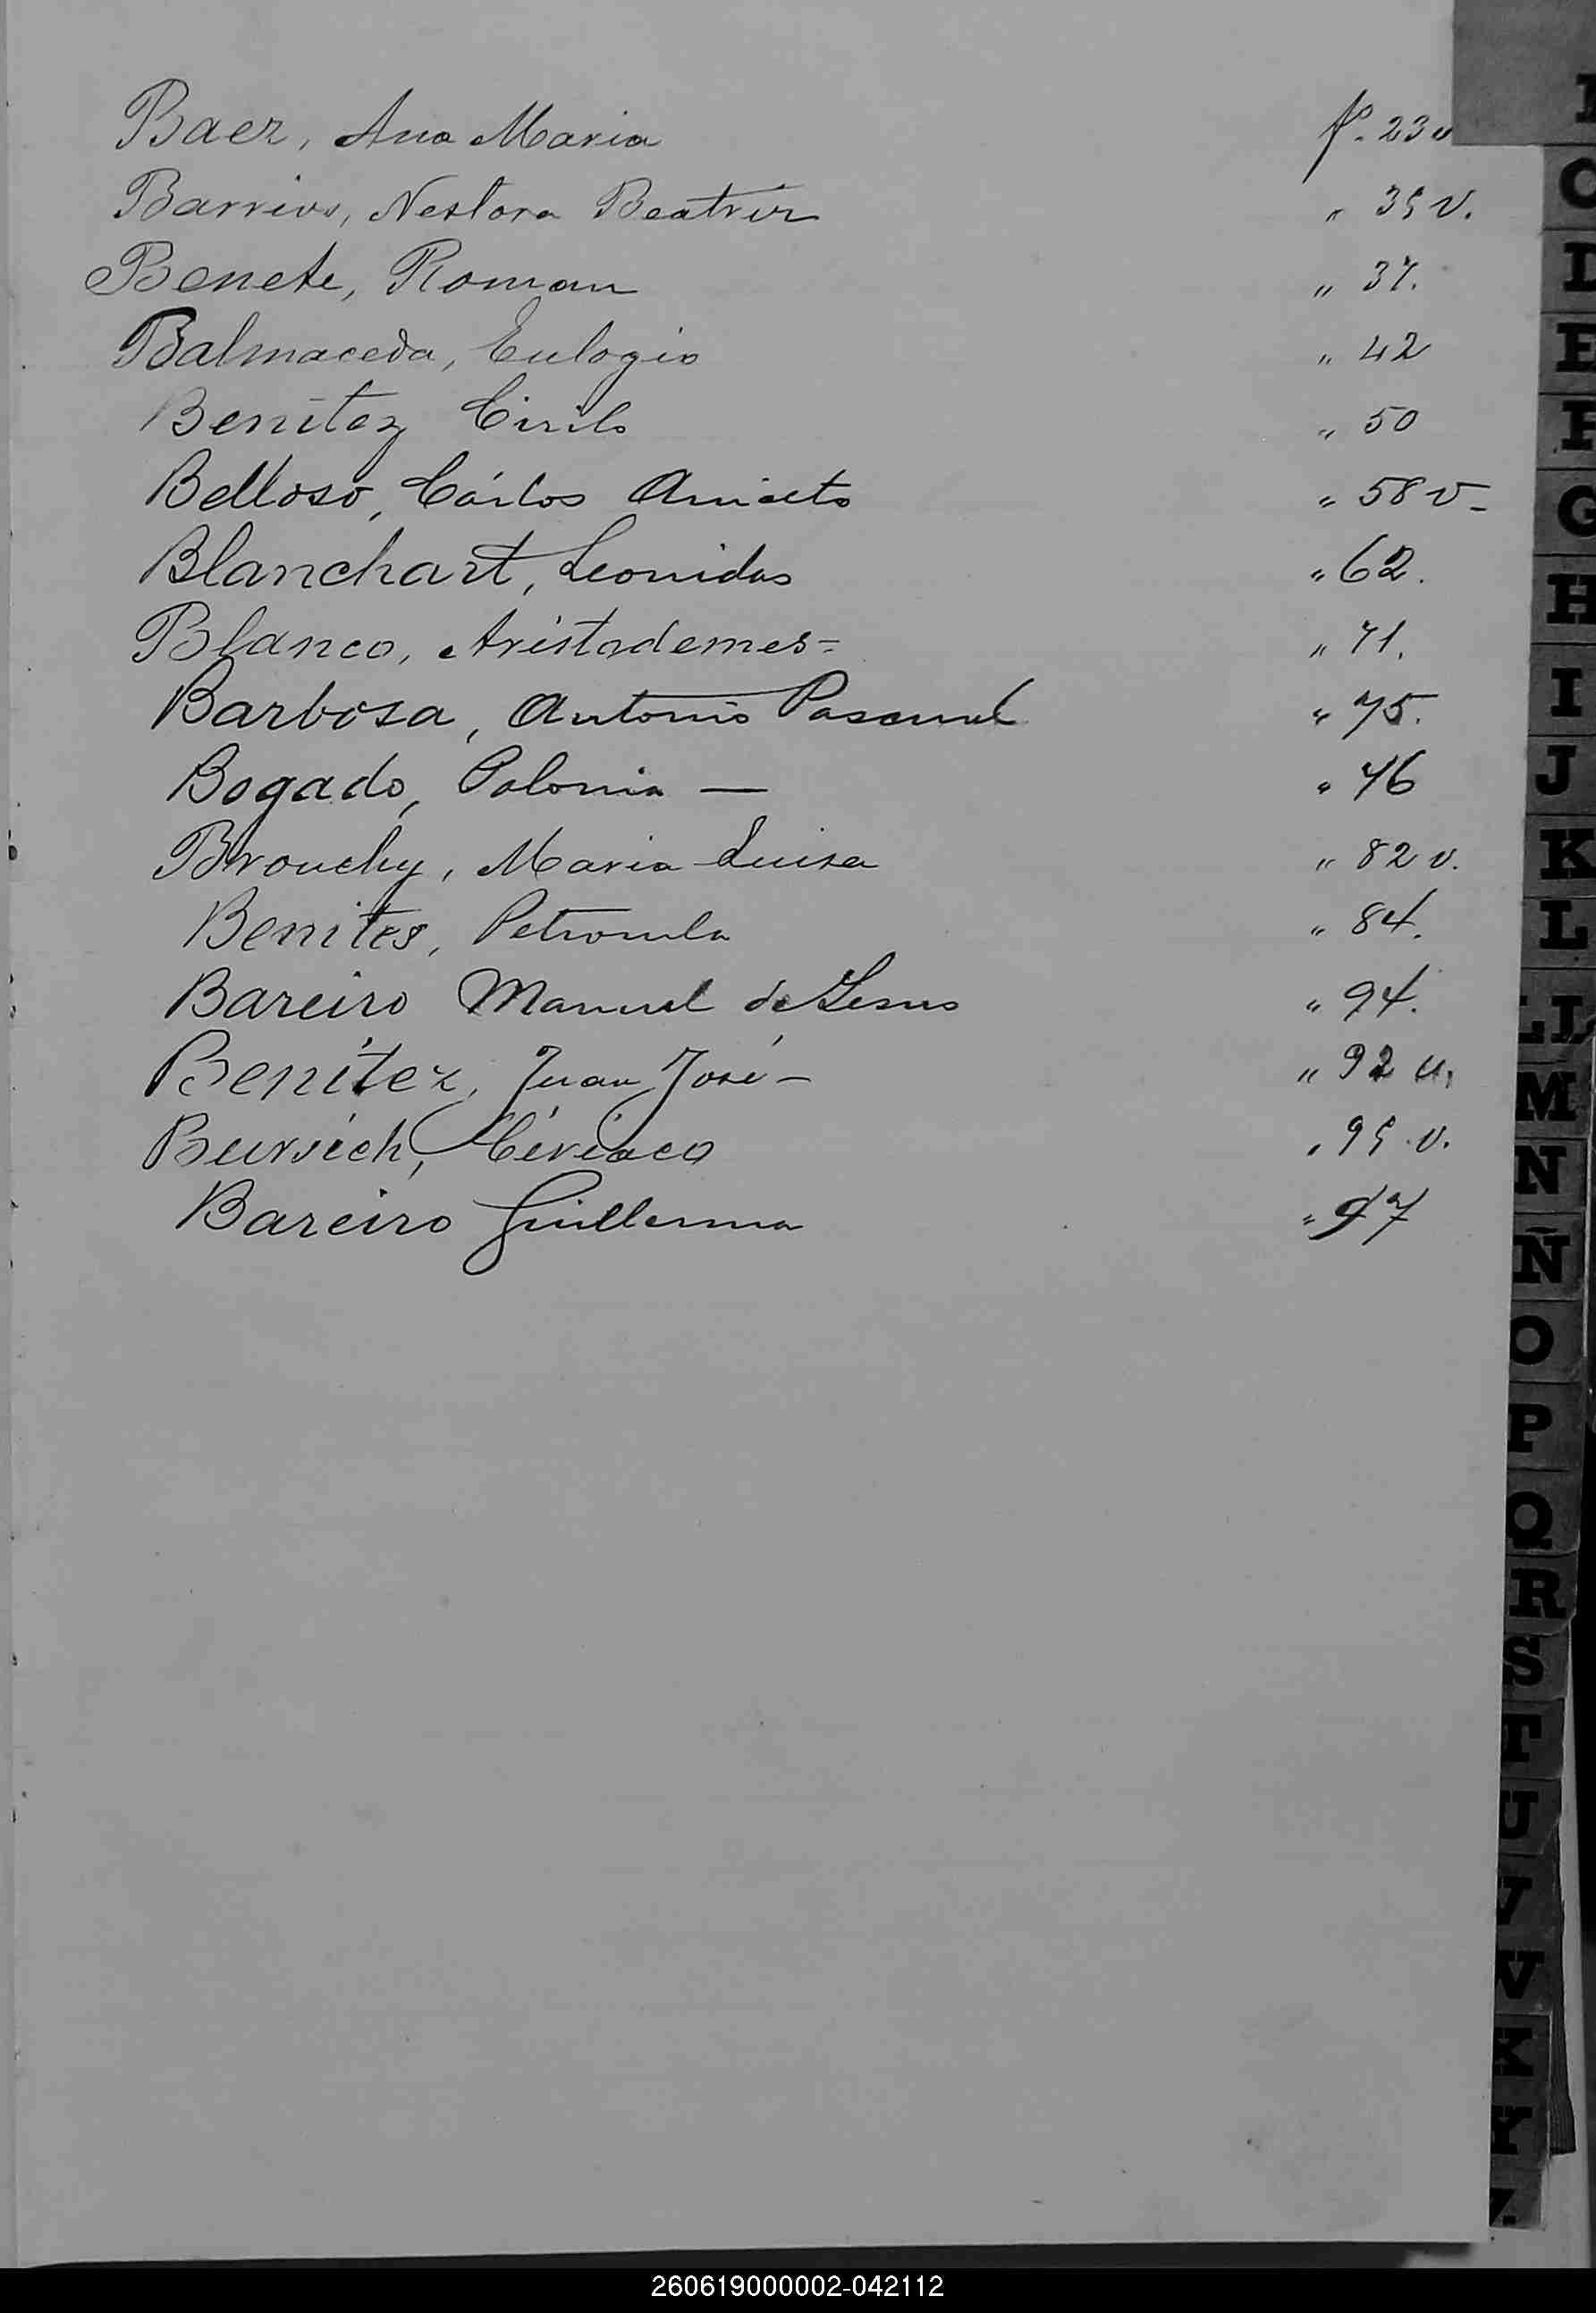 Baez, Ana Maria fº. 23 v
Barrios, Nestora Beatriz " 35 v.
Benete, Roman " 37.
Balmaceda, Eulogio " 42
Benítez Cirilo " 50
Belloso, Cárlos Aniceto " 58 v-
Blanchart, Leonidas " 62.
Blanco, Aristodemes= " 71.
Barbosa, Antonio Pascual " 75.
Bogado, Polonia — " 76
Brouchy, Maria Luisa " 82 v.
Benites, Petronila " 84.
Bareiro Manuel de Jesus " 94.
Benítez, Juan José- " 92 v.
Bursich, Ciriaco " 95 v.
Bareiro Guillerma " 97
O
D
E
F
G
H
I
J
K
L
LL
M
N
Ñ
O
P
Q
R
S
T
U
V
W
X
Y
Z
260619000002-042112